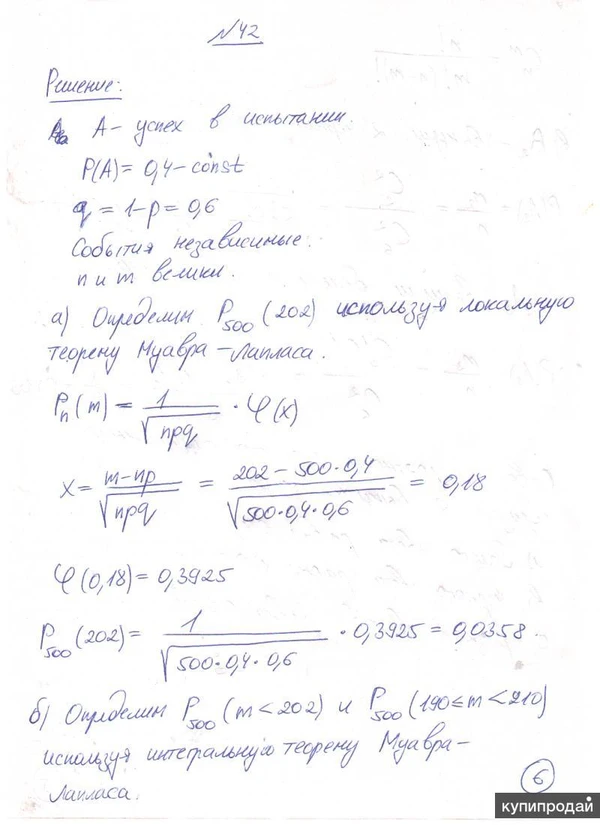 №42
Решение:
А - успех в испытании.
P(A) = 0,4 - const
q = 1-p = 0,6
События независимые.
n и m велики.
а) Определим P₅₀₀(202) используя локальную
теорему Муавра - Лапласа.
Pₙ(m) = 1/√npq · φ(x)
x = m-np/√npq = 202 - 500·0,4/√500·0,4·0,6 = 0,18
φ(0,18) = 0,3925
P₅₀₀(202) = 1/√500·0,4·0,6 · 0,3925 = 0,0358.
б) Определим P₅₀₀(m<202) и P₅₀₀(190≤m<210)
используя интегральную теорему Муавра-
Лапласа.
6
купипродай